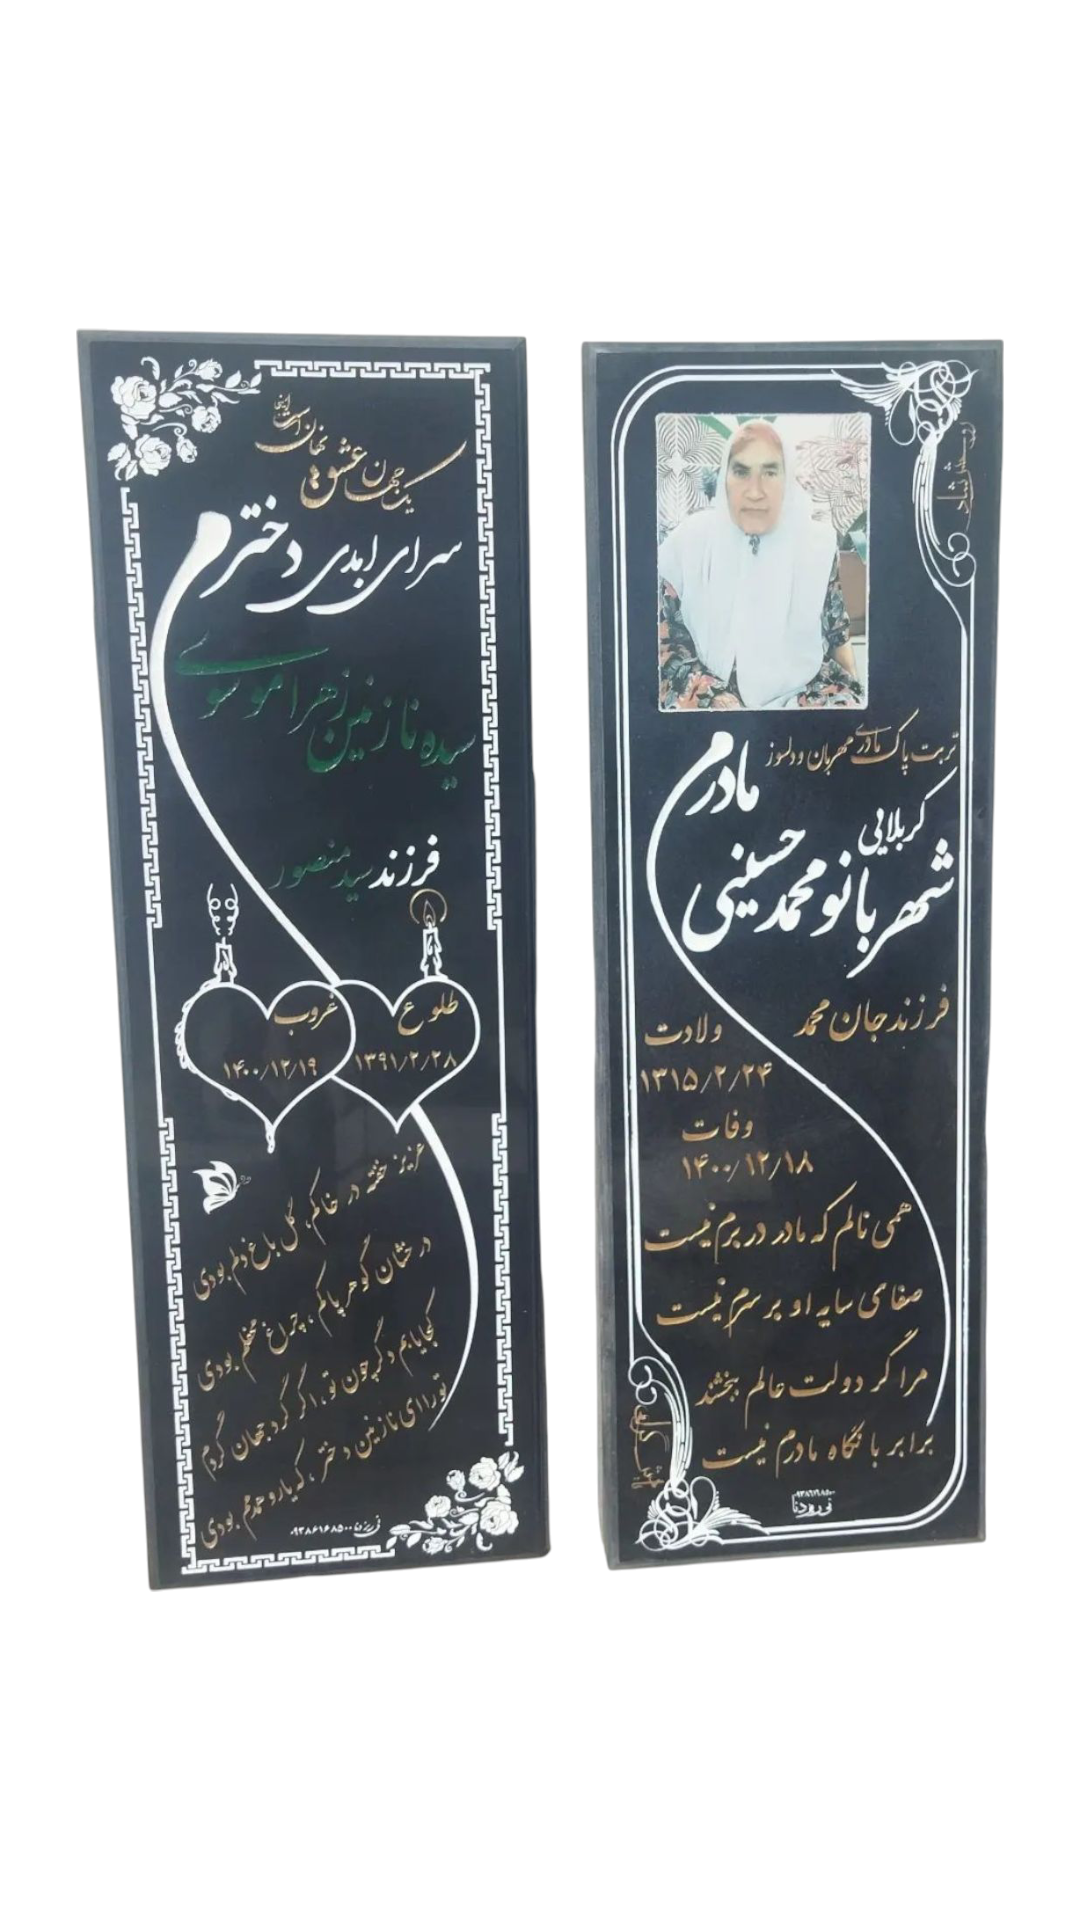 یک جهان عشق نهان است اینجا
سرای ابدی دخترم
سیده نازنین زهرا موسوی
فرزند سید منصور
طلوع
۱۳۹۱/۲/۲۸
غروب
۱۴۰۰/۱۲/۱۹
عزیز خفته در خاکم، گل باغ دلم بودی
درخشان گوهر پاکم، چراغ محفلم بودی
کجا یابم دگر چون تو، اگر گرد جهان گردم
تو را ای نازنین دختر، که یار و همدمم بودی
۰۹۳۸۶۱۶۸۵۰۰
روحش شاد
تربت پاک مادری مهربان و دلسوز
مادرم
کربلایی
شهربانو محمدحسینی
فرزند جان محمد
ولادت
۱۳۱۵/۲/۲۴
وفات
۱۴۰۰/۱۲/۱۸
همی نالم که مادر در برم نیست
صفای سایه او بر سرم نیست
مرا گر دولت عالم ببخشند
برابر با نگاه مادرم نیست